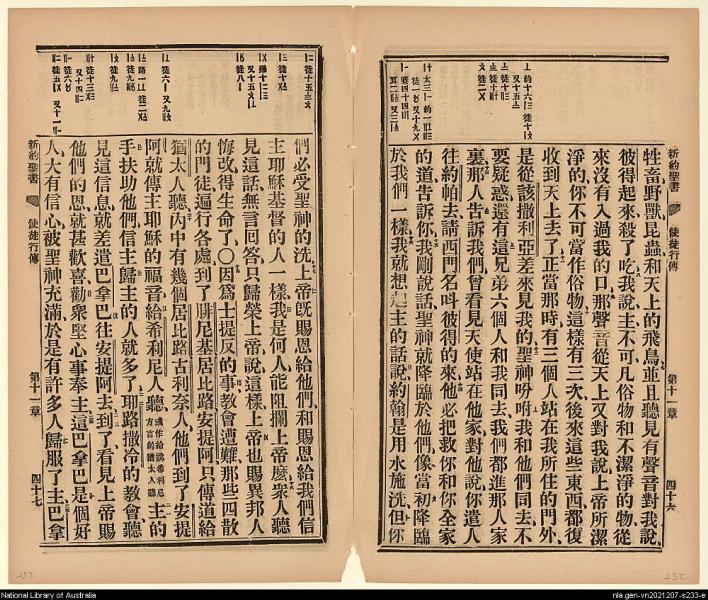 新約聖書
使徒行傳
第十一章
四十六
牲畜野獸昆蟲和天上的飛鳥並且聽見有聲音對我說
彼得起來殺了吃我說主不可凡俗物和不潔淨的物從
來沒有入過我的口那聲音從天上又對我說上帝所潔
淨的你不可當作俗物這樣有三次後來這些東西都復
收到天上去了正當那時有三個人站在我所住的門外
是從該撒利亞差來見我的聖神吩咐我和他們同去不
要疑惑還有這兄弟六個人和我同去我們都進那人家
裏那人告訴我們曾看見天使站在他家對他說你遣人
往約帕去請西門名呌彼得的來他必把救你和你全家
的道告訴你我剛說話聖神就降臨於他們像當初降臨
於我們一樣我就想起主的話說約翰是用水施洗但你
們必受聖神的洗上帝旣賜恩給他們和賜恩給我們信
主耶穌基督的人一樣我是何人能阻攔上帝麽衆人聽
見這話無言回答只歸榮上帝說這樣上帝也賜異邦人
悔改得生命了○因爲士提反的事教會遭難那些四散
的門徒遍行各處到了腓尼基居比路安提阿只傳道給
猶太人聽內中有幾個居比路古利奈人他們到了安提
阿就傳主耶穌的福音給希利尼人聽或作給說希利尼方言的猶太人聽主的
手扶助他們信主歸主的人就多了耶路撒冷的教會聽
見這信息就差遣巴拿巴往安提阿去到了看見上帝賜
他們的恩就甚歡喜勸衆堅心事奉主這巴拿巴是個好
人大有信心被聖神充滿於是有許多人歸服了主巴拿
新約聖書
使徒行傳
第十一章
四十七
232
National Library of Australia
nla.gen-vn2021207-s233-e